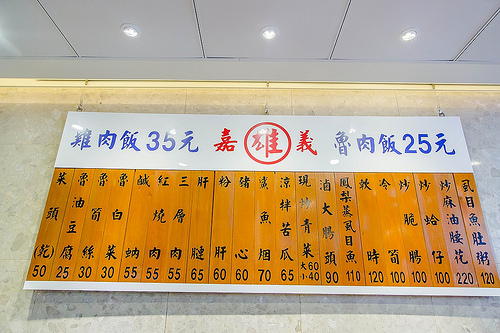 雞肉飯35元 嘉雄義 魯肉飯25元
菜頭(乾) 50
魯油豆腐 25
魯筍絲 30
魯白菜 30
鹹蚋 55
紅燒肉 55
三層肉 55
肝腱 65
粉肝 60
豬心 60
鯊魚烟 70
涼拌苦瓜 65
現炒青菜 大60 小40
滷大腸頭 90
鳳梨蒸虱目魚 110
軟時 120
冷筍 100
炒脆腸 100
炒蛤仔 100
炒麻油腰花 220
虱目魚肚粥 120